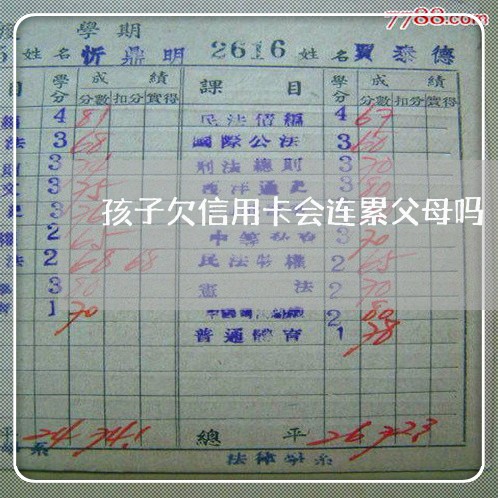 7788.com
學期
姓名 忻鼎明 2616 姓名 賈泰德
目 學分 成績 課目 學分 成績
分數 扣分 實得 分數 扣分 實得
4 81 民法債編 4 67
法 3 68 國際公法 3 60
3 刑法總則 3 70
3 75 西洋通史 3 80
孩子欠信用卡会连累父母吗
2 65 3 70
法 2 68 68 民法物權 2 65
3 80 憲法 2 70
1 70 2 80
普通體育 1 78
平 24 74.1 總平 26 72.3
系 法律學系